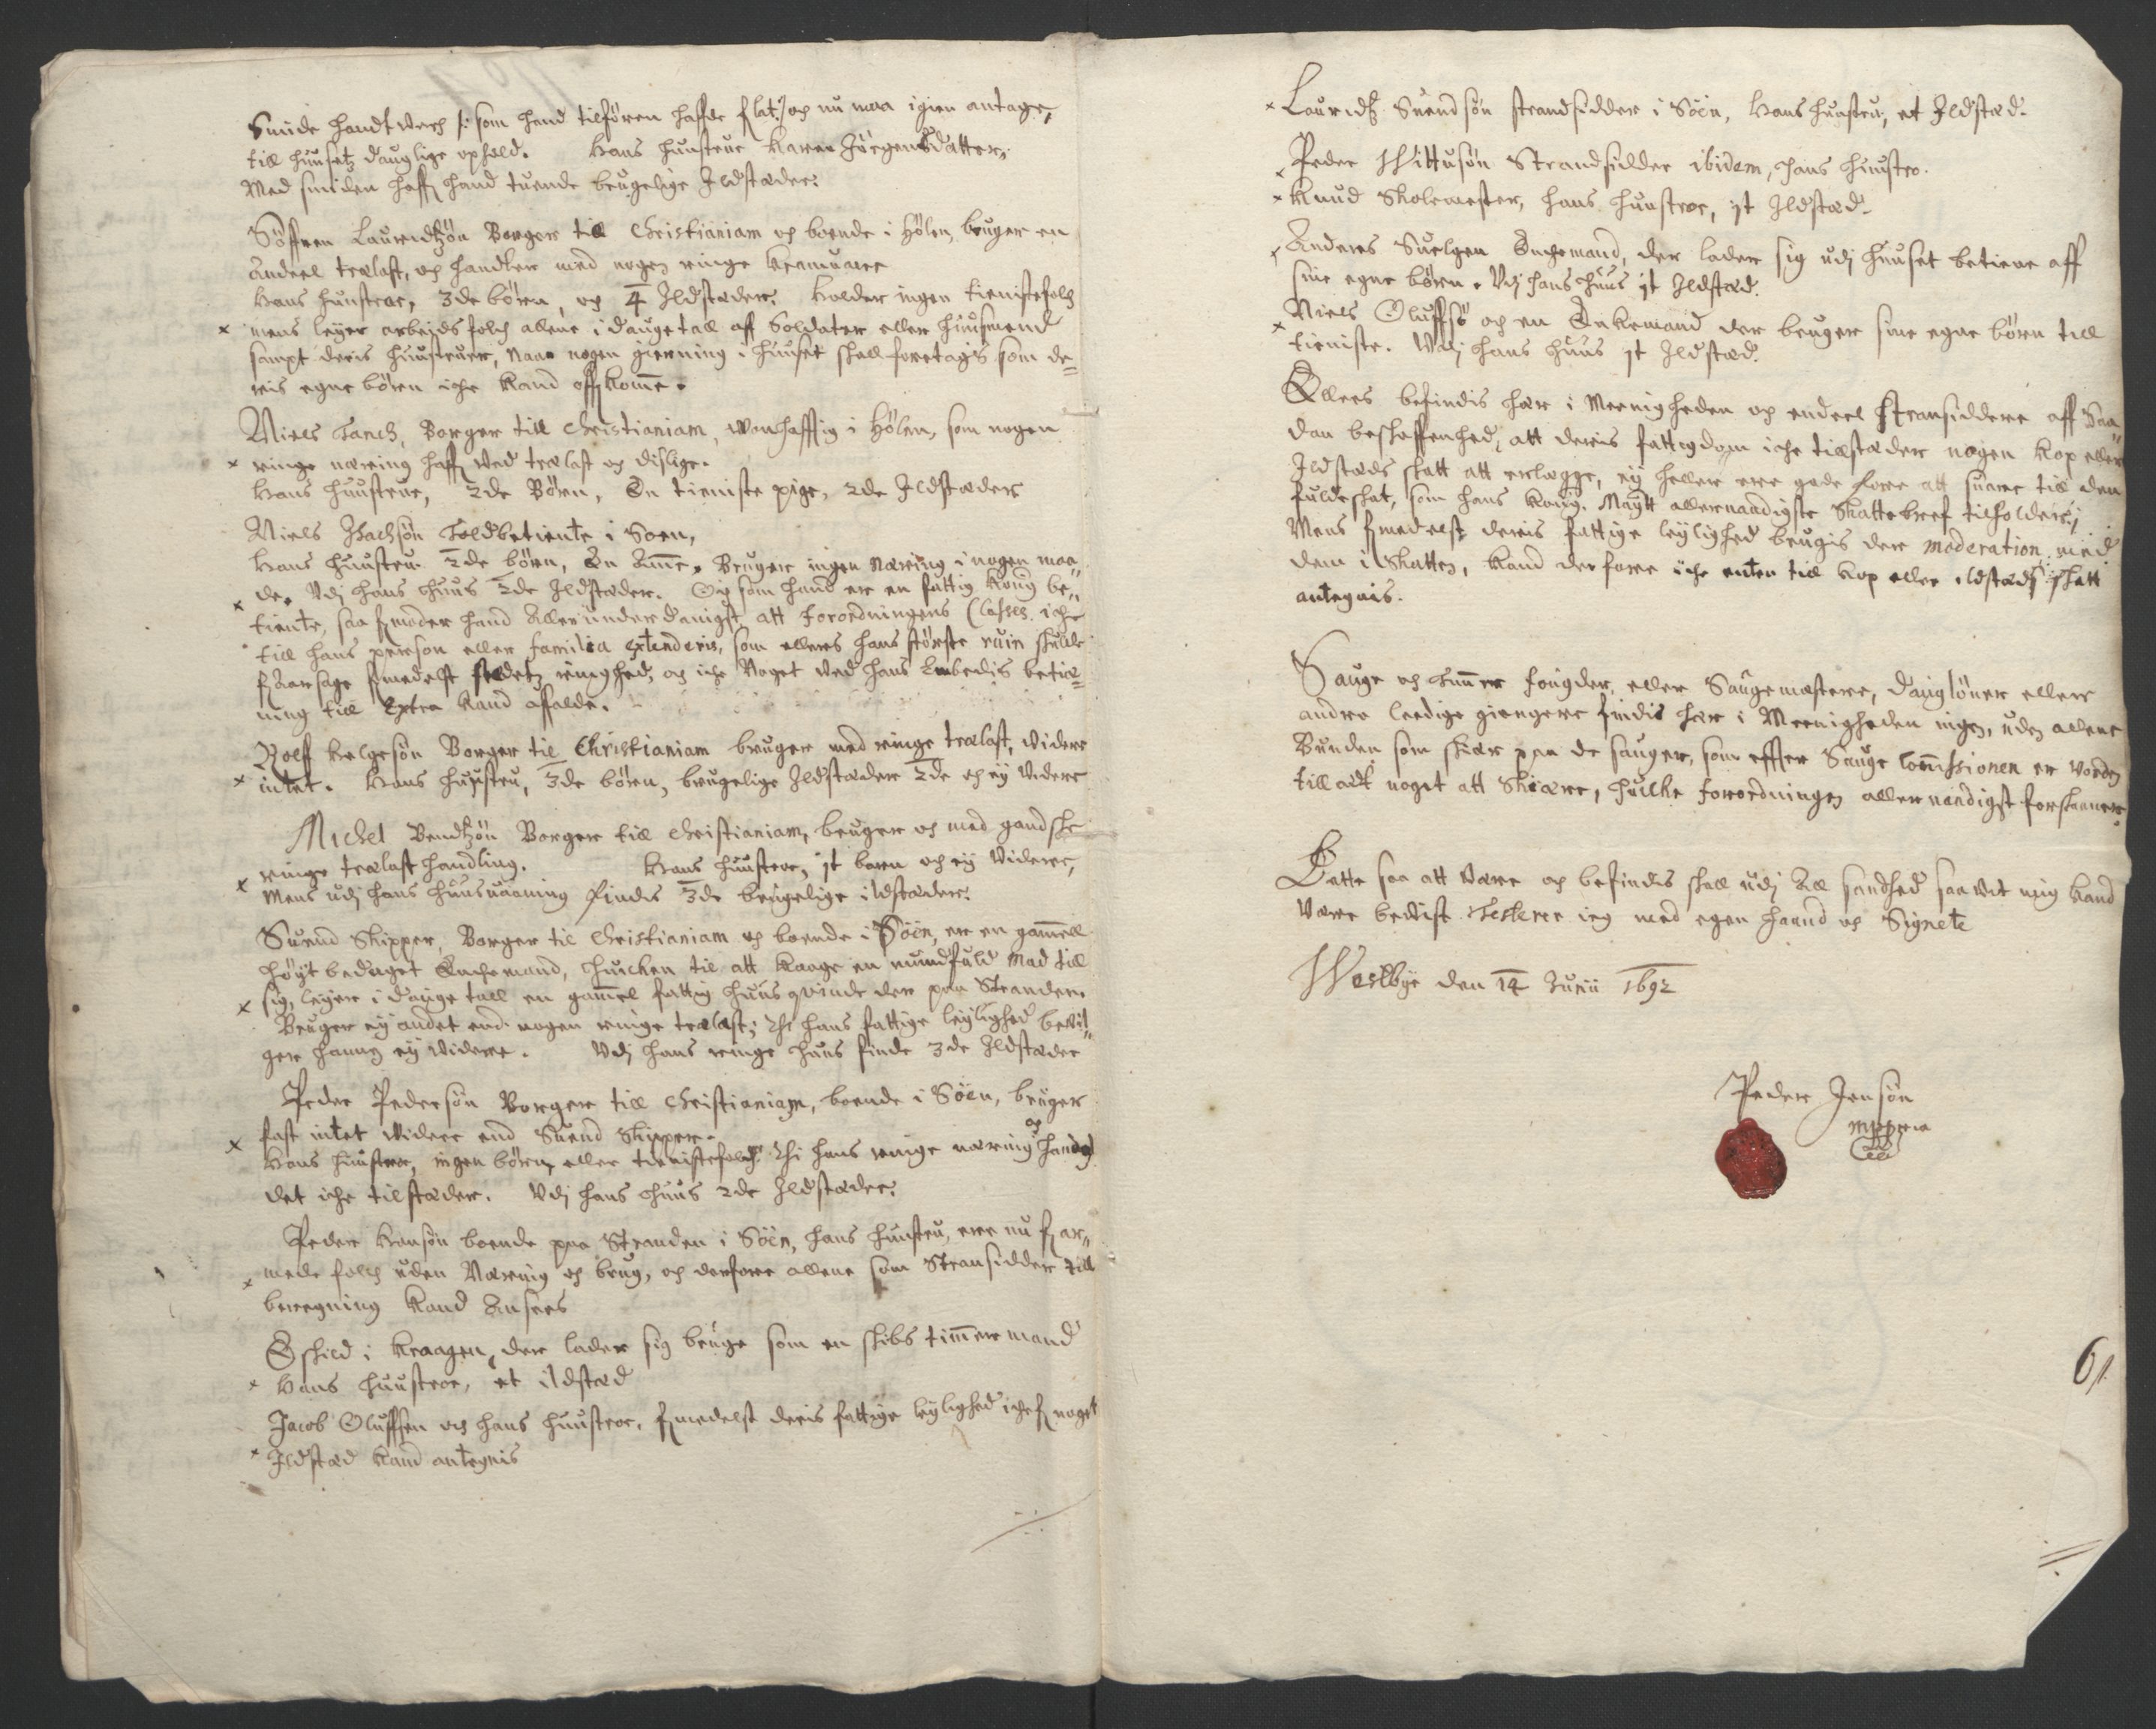 Smide handtverch /: som hand tilforen haffde f lat :/ och nu maa igien antage,
till huusetz dauglige ophold. Hans huustrue Karen Jörgensdatter,
Med smiden haffr hand tuende brugelige Ildstæder.
Söffren Lauridtzön Borger till Christianiam och boende i Hölen, bruger en
andeel trælast, och handler med nogen ringe kramvarer
Hans huustroe, 3de börn, og 4 Ildstæder. Holder ingen tienistefolch
x mens leyer arbejdsfolch allene i daugetall aff Soldater eller huusmend
sampt deris huustruer, naar nogen gierning i huuset skall foretagis som de=
ris egne börn iche kand affkomme.
Niels Tanch, Borger till Christianiam, Wonhafftig i Hölen, som nogen
x ringe næring haffr ved trælast og dislige.
Hans huustrue, 2de Börn, En tieniste pige, 2de Ildstæder
Niels Isachsön Toldbetiente i Soen,
Hans huustru 2de börn, En Amme. Bruger ingen Næring i nogen maa„
de. Udj hans huus 2de Ildstæder. Og som hand er en fattig kong be„
x tiente, saa formoder hand Allerunderdanigst att Forordningens Classes iche
till hans person eller familia extenderis, som ellers hans störste ruin skulle
foraarsage formedelst stedetz ringhed, og iche Noget ved hans Embedis betie=
ning till Extra kand affalde.
Rolff Helgesön Borger til Christianiam bruger med ringe trælast, videre
x intet. Hans huustru, 3de börn, brugelige Ildstæder 2de och ey videre
Michel Bendtzön Borger till Christianiam, bruger og med gandske
ringe trælast handling. Hans huustroe, 1t barn och ey videre,
x Mens udj hans huusvaaning findis 3de brugelige ildstæder.
Suend Skipper, Borger til Christianiam og boende i Söen, er en gammell
höyt bedaget Enchemand, huilchen til att kaage en mundfuld Mad till
x sig, leyer i dauge tall en gammel fattig huus qvinde der paa Stranden.
Bruger ey andet end nogen ringe trælast; thi hans fattige leylighed bevil„
ger hannem ey videre. Udj hans ringe huus finde 3de Ildstæder
Peder Pedersön Borger till Christianiam, boende i Söen, bruger
x fast intet videre end Suend Skipper.
Hans huustroe, ingen börn, eller tienistefolch. Thi hans ringe næring og handel
det iche tilstæder. Udj hans huus 2de Ildstæder.
Peder Hansön boende paa Stranden i Söen, hans huustru, ere nu forar„
x mede folch uden Næring og brug, og derfore allene som Stransidder till
beregning kand Ansees
Eskild i Kraagen, der lader sig bruge som en skibs timmermand
x Hans huustroe, et ildstæd
Jacob Oluffsen och hans huustroe, formedelst deris fattige leylighed iche for noget
x Ildstæd kand antegnis
x Lauridz Suendsön strandsidder i Söen, Hans huustru, et Ildstæd.
x Peder Wittusön Strandsidder ibidem, hans huustro.
x Knud Skolemester, hans huustroe, 1t Ildstæd.
x Anders Suelgen Enchemand, der lader sig udj huuset betiene aff
sine egne börn. Udj hans huus 1t Ildstæd.
x Niels Oluffsö og en Enkemand der bruger sine egne börn till
tieniste. Udj hans huus 1t Ildstæd.
Ellers befindis her i Meenigheden og endeel stransiddere aff Saa„
dan beskaffenhed, att deris fattigdom iche tillstæder nogen Kop eller
Ildstæds skatt att erlegge, ey heller ere gode fore att suare till den
fulde skat, som hans Kong. Maytt allernaadigste Skattebref tilholder;
Mens formedelst deris fattige leylighed brugis der moderation med
dem i Skatten, kand derfore iche enten till kop eller ildstæds skatt
antegnis.
Sauge og tømmer fougder, eller Saugemestere, dauglöner eller
andre leedige giengere findis her i Meenigheden ingen, uden allene
Bunden som skiær paa de sauger, som effter Sauge Commissionen er vorden
tilladt noget att Skiære, huilke forordningen allernaadigst forskaaner.
Dette saa att være og befindis skall udj All sandhed saavit mig kand
være bevist Testerer ieg med egen haand og Signete
Westbye den 14 Junii 1692
Peder Jensön
mppria
61